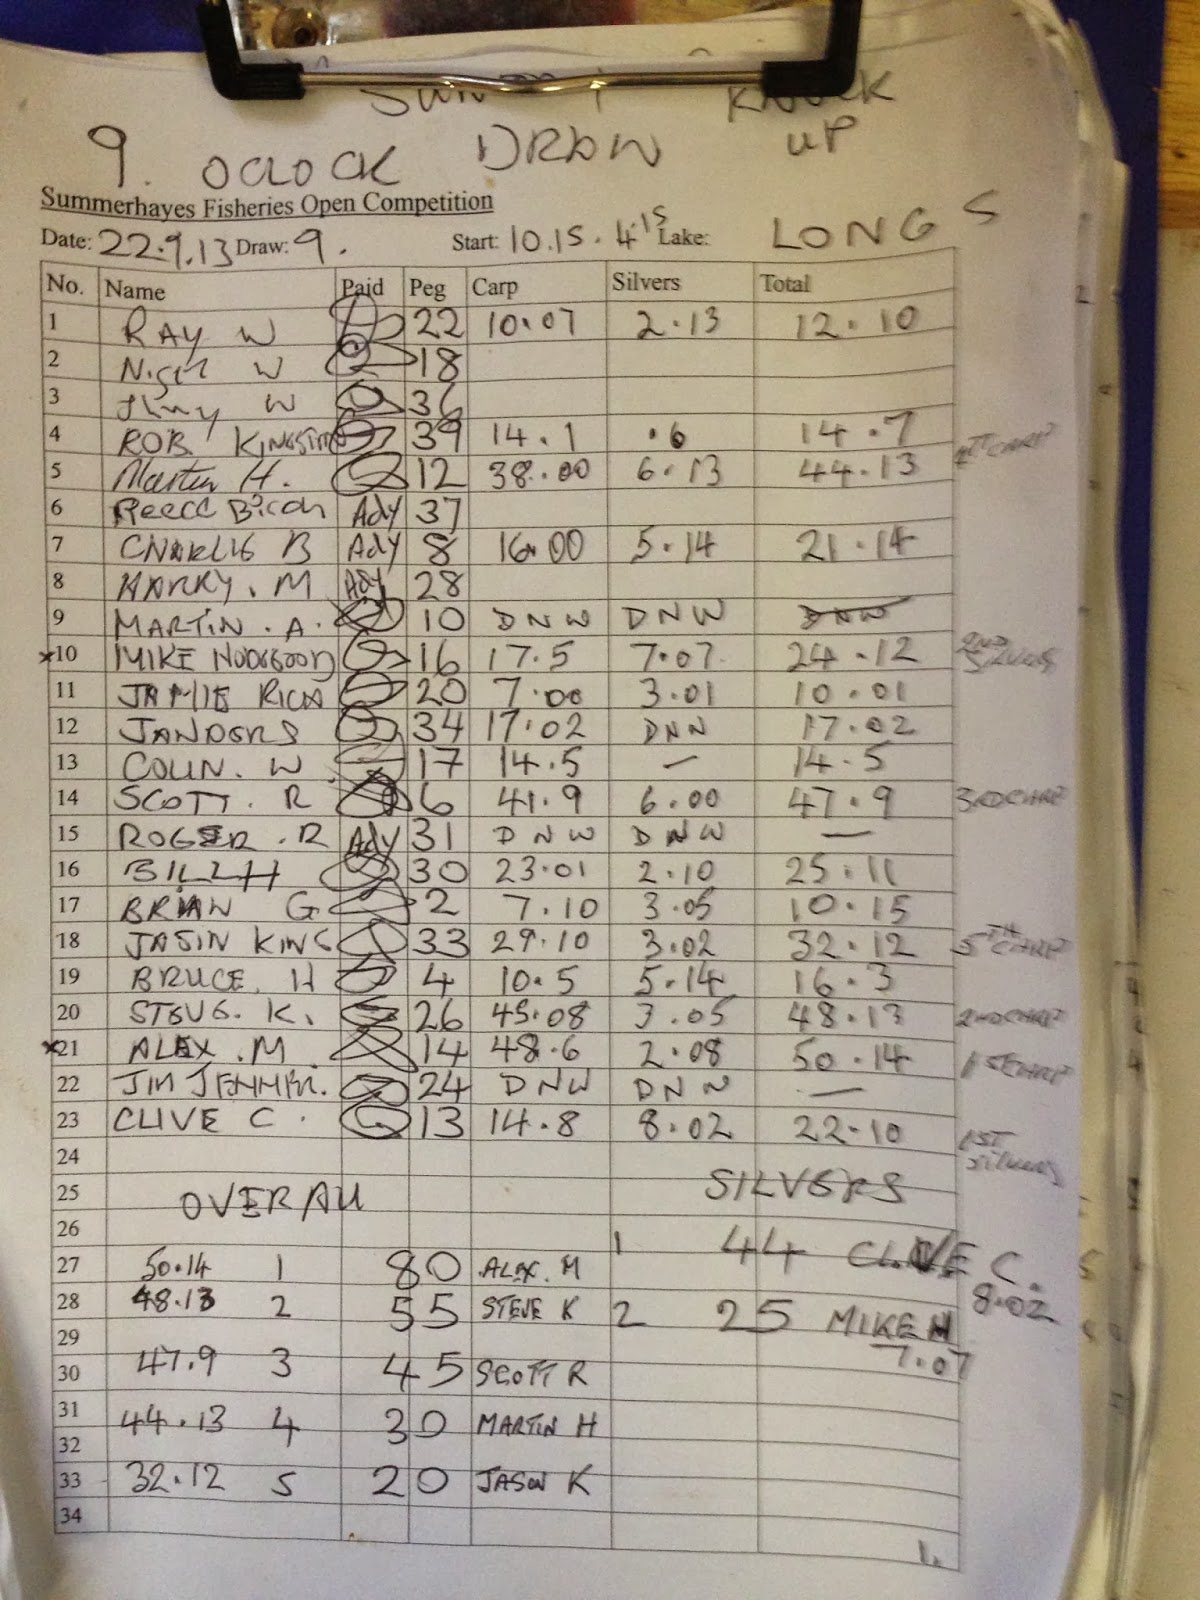 KNOCK
9. OCLOCK DRAW UP
Summerhayes Fisheries Open Competition
Date: 22.9.13 Draw: 9. Start: 10.15. 4.15 Lake: LONGS
No. Name Paid Peg Carp Silvers Total
1 RAY W 22 10.07 2.13 12.10
2 W 18
3 W 36
4 ROB 39 14.1 .6 14.7
5 Martin H. 12 38.00 6.13 44.13 4TH CARP
6 Ady 37
7 CHARLIE B Ady 8 16.00 5.14 21.14
8 HARRY. M Ady 28
9 MARTIN. A. 10 DNW DNW DNW
*10 MIKE 16 17.5 7.07 24.12 2ND SILVERS
11 JAMIE RICH 20 7.00 3.01 10.01
12 JANDERS 34 17.02 DNN 17.02
13 COLIN. W 17 14.5 — 14.5
14 SCOTT. R 6 41.9 6.00 47.9 3RD CARP
15 ROGER. R Ady 31 DNW DNW —
16 BILL H 30 23.01 2.10 25.11
17 BRIAN G 2 7.10 3.05 10.15
18 JASIN KING 33 29.10 3.02 32.12 5TH CARP
19 BRUCE. H 4 10.5 5.14 16.3
20 STEVE. K. 26 45.08 3.05 48.13 2ND CARP
*21 ALEX. M 14 48.6 2.08 50.14 1ST CARP
22 JIM 24 DNW DNN —
23 CLIVE C. 13 14.8 8.02 22.10 1ST Silvers
24
25 OVERALL SILVERS
26 1 44 CLIVE C. 8.02
27 50.14 1 80 ALEX. M
28 48.13 2 55 STEVE K 2 25 MIKE N 7.07
29
30 47.9 3 45 SCOTT R
31 44.13 4 30 MARTIN H
32
33 32.12 5 20 JASON K
34
1.